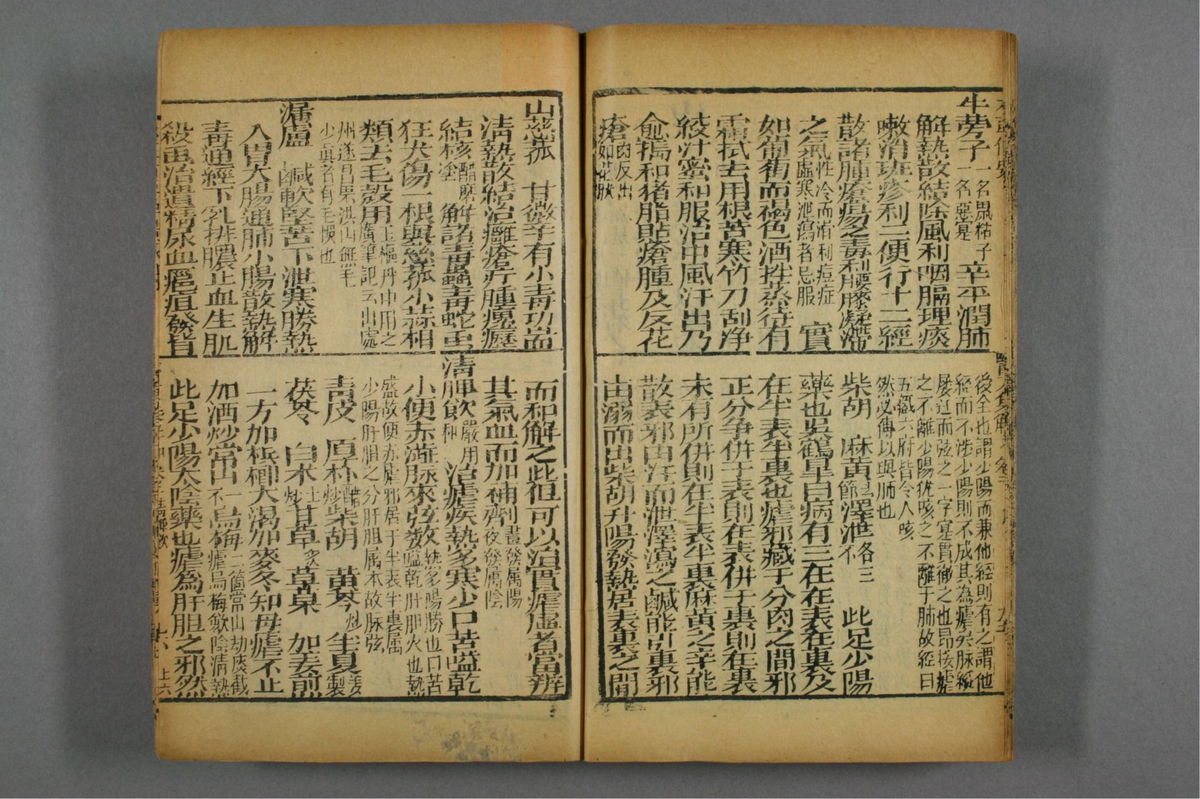 牛蒡子 一名鼠粘子 一名惡實 辛平潤肺
解熱散結除風利咽膈理痰
嗽消斑疹利二便行十二經
散諸腫瘡瘍之毒利腰膝凝滯
之氣 性冷而滑利痘症 虛寒泄瀉者忌服 實
如葡萄而褐色酒拌蒸待有
霜拭去用根苦寒竹刀刮淨
絞汁蜜和服治中風汗出乃
愈搗和猪脂貼瘡腫及反花
瘡 肉反出 如花狀
山慈菰 甘微辛有小毒功耑
清熱散結治癰瘡疔腫瘰癧
結核 醋磨塗 解諸毒蠱毒蛇虫
狂犬傷 根與慈菰小蒜相
類去毛殼用 玉樞丹中用之 廣筆記云出處
州遂昌縣洪山無毛
少真者有毛悞也
漏盧 鹹軟堅苦下泄寒勝熱
入胃大腸通肺小腸散熱解
毒通經下乳排膿止血生肌
殺虫治遺精尿血癰疽發背
後全也謂少陽而兼他經則有之謂他
經而不 少陽則不成其為瘧矣脈縱
屢遷而弦之一字實貫御之也昂按瘧
之不離少陽猶咳之不離于肺故經曰
五臟六府皆令人咳
然必傳以與肺也
柴胡 麻黃 去節 澤泄 各三 不 此足少陽
藥也吳鶴皐曰病有三在在表在裏及
在半表半裏也瘧邪藏于分肉之間邪
正分爭併于表則在表併于裏則在裏
未有所併則在半表半裏麻黃之辛能
散表邪由汗而泄澤瀉之鹹能引裏邪
由溺而出柴胡升陽發熱居表裏之間
而和解之此但可以治實瘧虛者當辨
其氣血而加補劑 晝發屬陽 夜發屬陰
清脾飲 嚴用和 治瘧疾熱多寒少口苦嗌乾
小便赤澁脉來弦數 熱多陽勝也口苦 嗌乾肝胆火也熱
盛故便赤瘧邪居于半表半裏屬
少陽肝胆之分肝胆属木故脉弦
青皮 厚朴 醋炒 柴胡 黃芩 炒 半夏 姜製
茯苓 白朮 土炒 甘草 炙 草菓 加姜煎
一方加檳榔大渴加麥冬知母瘧不止
加酒炒常山 一不 烏梅 二箇常山劫痰截 瘧烏梅斂陰清熱
此足少陽太陰藥也瘧為肝胆之邪然